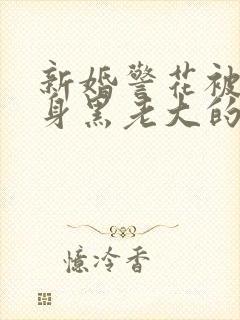 新婚警花被
身黑老大的
憶冷香